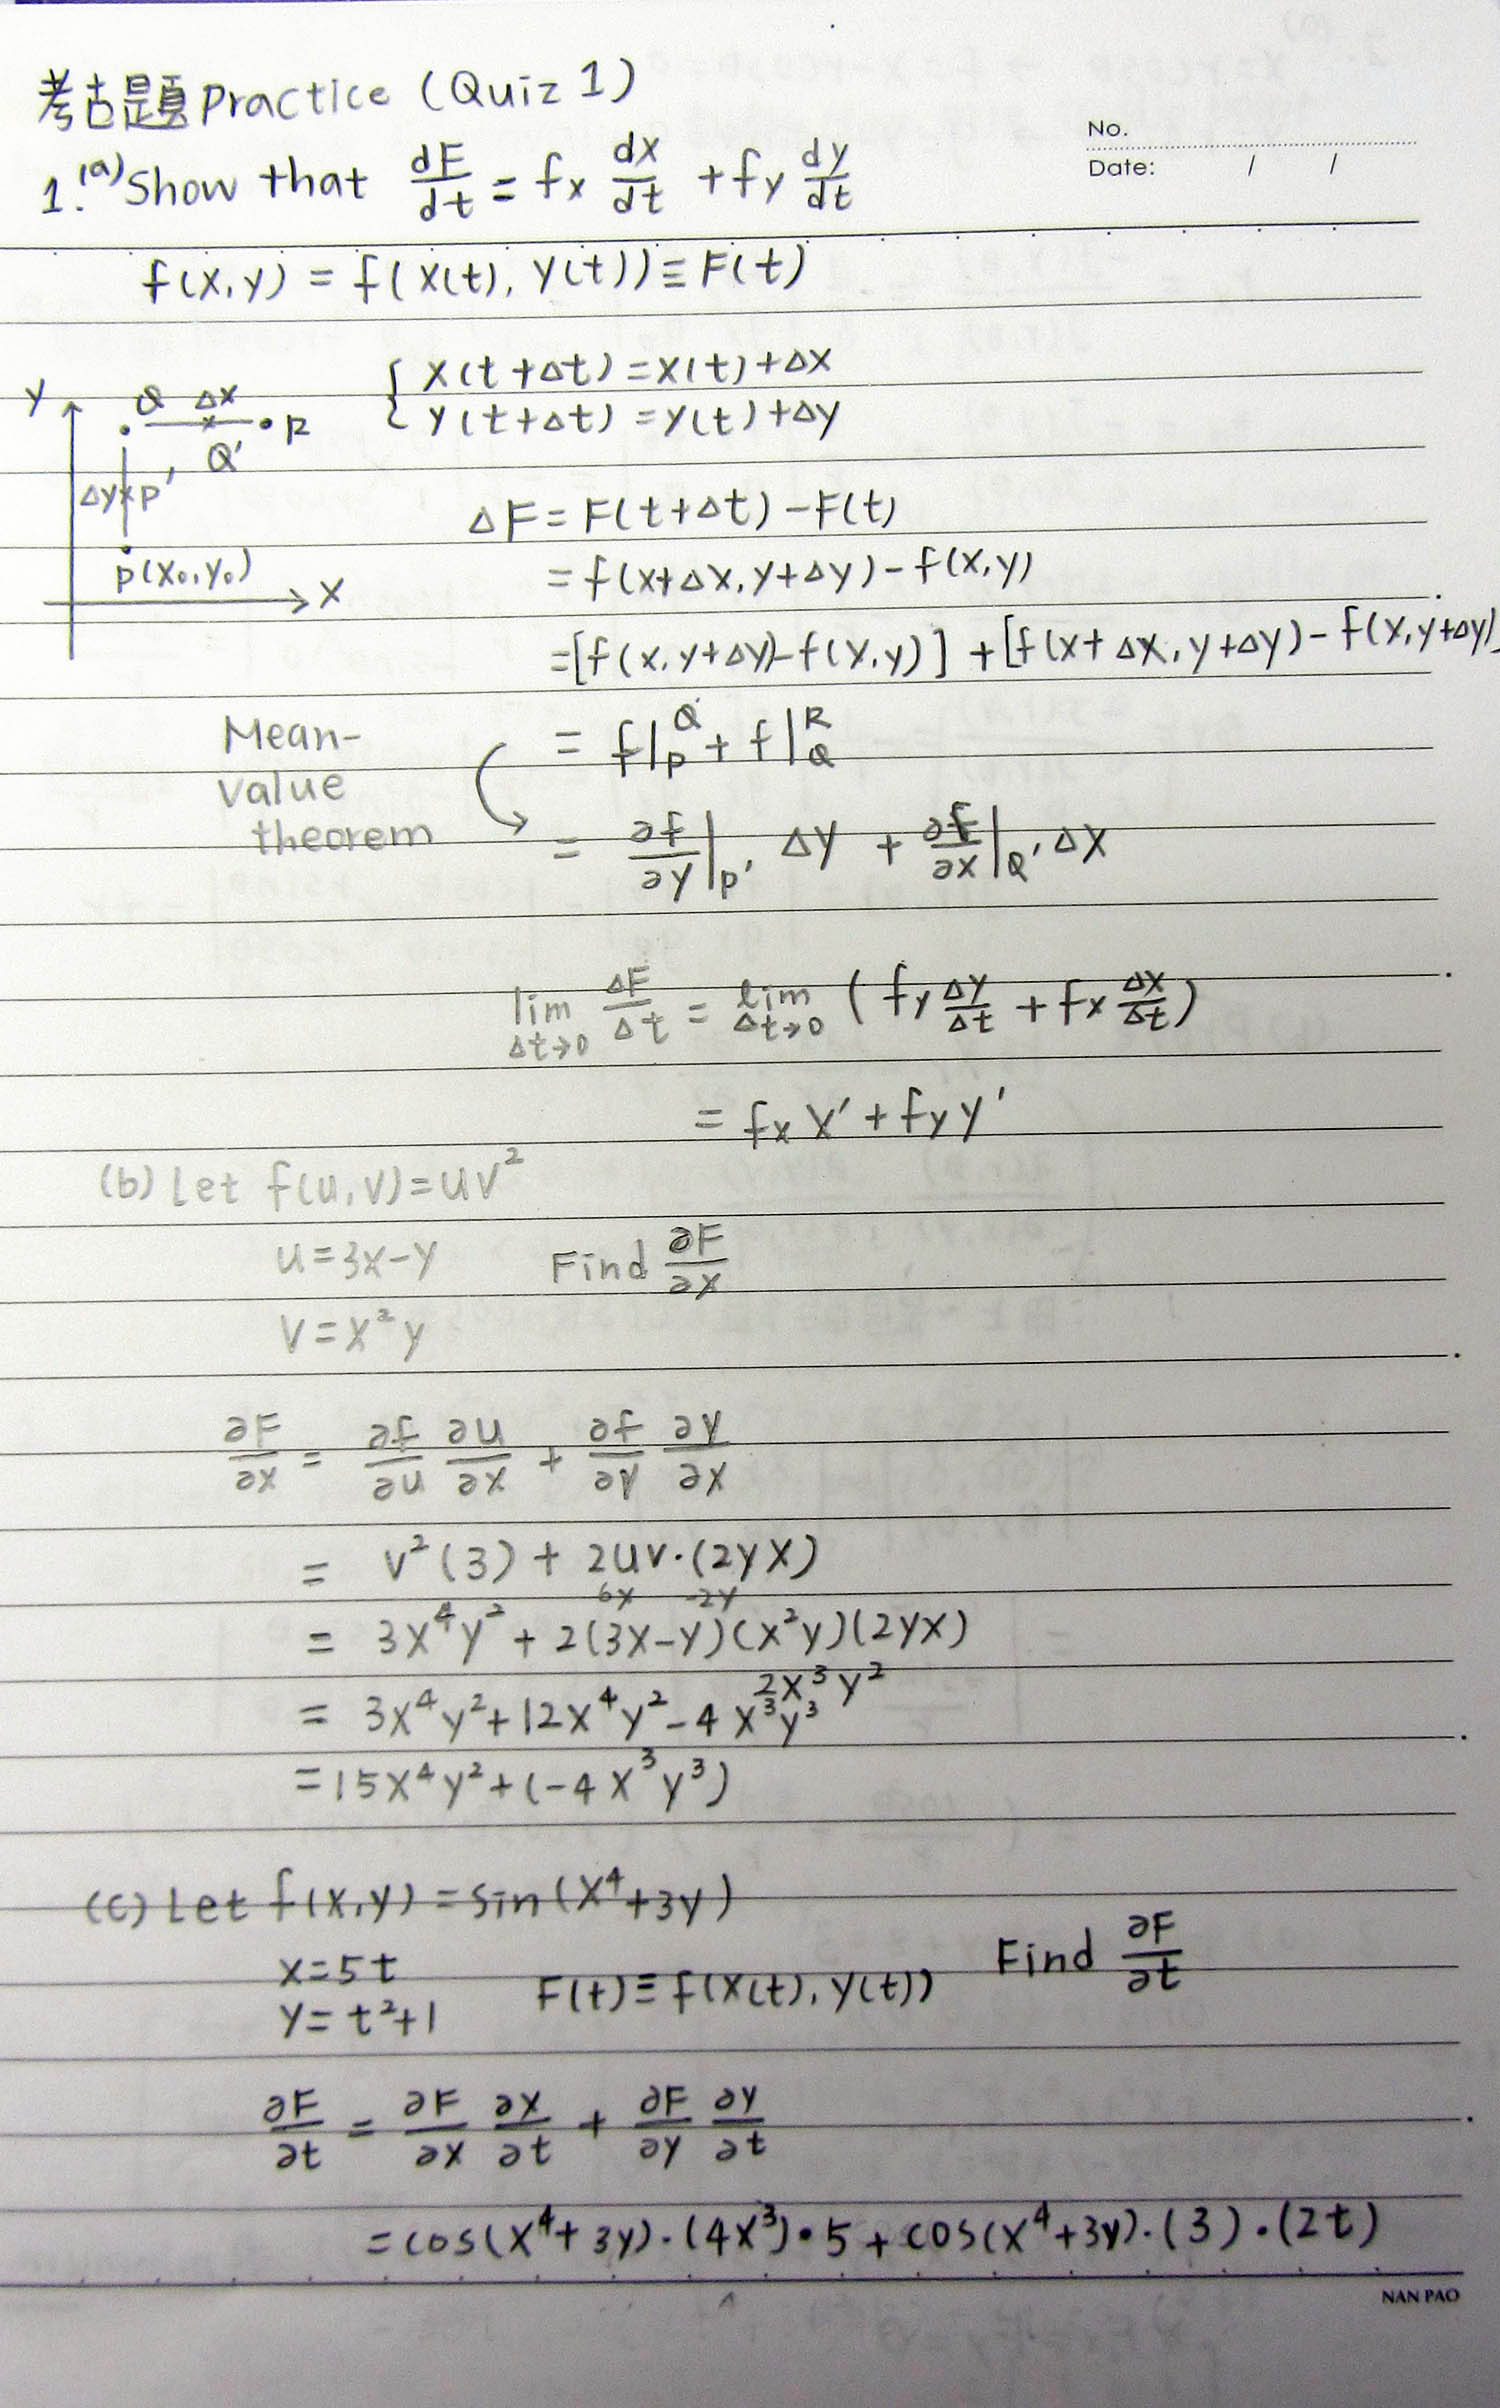 考古題 Practice (Quiz 1)
No.
Date: / /
1. (a) Show that dF/dt = fx dx/dt + fy dy/dt
f(x,y) = f(x(t), y(t)) ≡ F(t)
{ x(t+Δt) = x(t) + Δx
y(t+Δt) = y(t) + Δy
y Q Δx R
Q'
Δy P'
P(x₀,y₀) x
ΔF = F(t+Δt) - F(t)
= f(x+Δx, y+Δy) - f(x,y)
= [f(x, y+Δy) - f(x,y)] + [f(x+Δx, y+Δy) - f(x, y+Δy)]
= f|_P^Q + f|_Q^R
Mean-
value
theorem
= ∂f/∂y|_P' Δy + ∂f/∂x|_Q' Δx
lim Δt→0 ΔF/Δt = lim Δt→0 (fy Δy/Δt + fx Δx/Δt)
= fx x' + fy y'
(b) Let f(u,v) = uv²
u = 3x-y Find ∂F/∂x
v = x²y
∂F/∂x = ∂f/∂u ∂u/∂x + ∂f/∂v ∂v/∂x
= v²(3) + 2uv·(2yx)
6x -2y
= 3x⁴y² + 2(3x-y)(x²y)(2yx)
2x³y²
= 3x⁴y² + 12x⁴y² - 4x³y³
= 15x⁴y² + (-4x³y³)
(c) Let f(x,y) = sin(x⁴+3y)
x = 5t F(t) ≡ f(x(t), y(t)) Find ∂F/∂t
y = t²+1
∂F/∂t = ∂F/∂x ∂x/∂t + ∂F/∂y ∂y/∂t
= cos(x⁴+3y)·(4x³)·5 + cos(x⁴+3y)·(3)·(2t)
NAN PAO